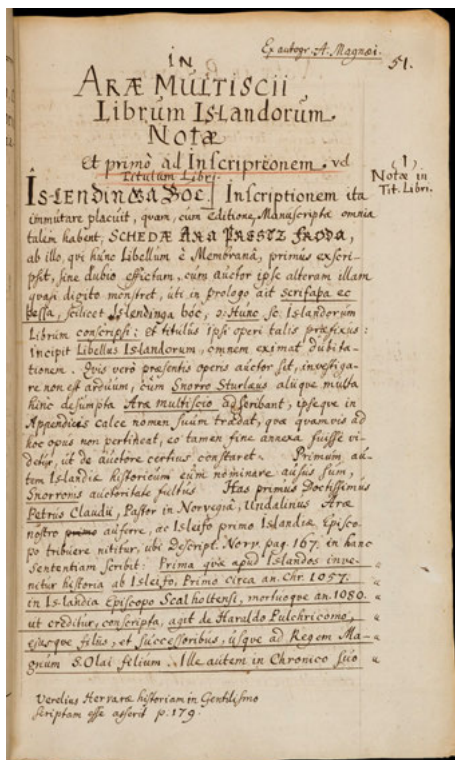 Ex autogr. A. Magnæi.
51.
IN
ARÆ MULTISCII
LIBRUM ISLANDORUM
NOTÆ
Et primò ad Inscriptionem. vel
Titulum Libri.
(1)
Notæ in
Tit. Libri.
ISLENDINGA BOC. Inscriptionem ita
immutare placuit, qvam, cum editione, Manuscripta omnia
talem habent, SCHEDÆ ARA PRESTZ FRODA,
ab illo, qvi hunc Libellum è Membranâ, primus exscri-
psit, sine dubio effictam, cum auctor ipse alteram illam
qvasi digito monstret, uti in prologo ait scrifaþa ec
þessa, scilicet Islendinga bóc, ɔ: Hunc sc. Islandorum
Librum conscripsi: et titulus ipsi operi talis præfixus:
incipit Libellus Islandorum, omnem eximat dubita-
tionem. Qvis verò præsentis operis auctor sit, investiga-
re non est arduum, cum Snorro Sturlæus aliqve multa
hinc desumpta Aræ multiscio adscribant, ipseqve in
Appendices calce nomen suum tradat, qvæ qvamvis ad
hoc opus non pertineat, eo tamen fine annexa fuisse vi-
detur, ut de auctore certius constaret. Primum au-
tem Islandiæ historicum eum nominare ausus sum,
Snorronis auctoritate fultus Has primus Doctissimus
Petrus Claudii, Pastor in Norvegiâ, Undalinus Aræ
nostro primo auferre, ac Isleifo primo Islandiæ Episco-
po tribuere nititur, ubi Descript. Norv. pag. 167. in hanc
sententiam scribit: Prima qvæ apud Islandos inve-
nitur historia ab Isleifo, Primo circa an. Chr. 1057.
in Islandia Episcopo Scalholtensi, mortuoqve an. 1080.
ut creditur, conscripta, agit de Haraldo Pulchricomo,
ejusqve filiis, et successoribus, usqve ad Regem Ma-
gnum S. Olai filium. Ille autem in Chronico suo
Verelius Hervaræ historiam in Gentilismo
scriptam esse asserit p. 179.